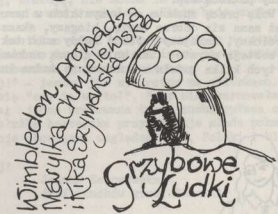 Wimbledon. prowadzą
Masylka Chmielewska
i Kika Szymańska
Grzybowe
Ludki